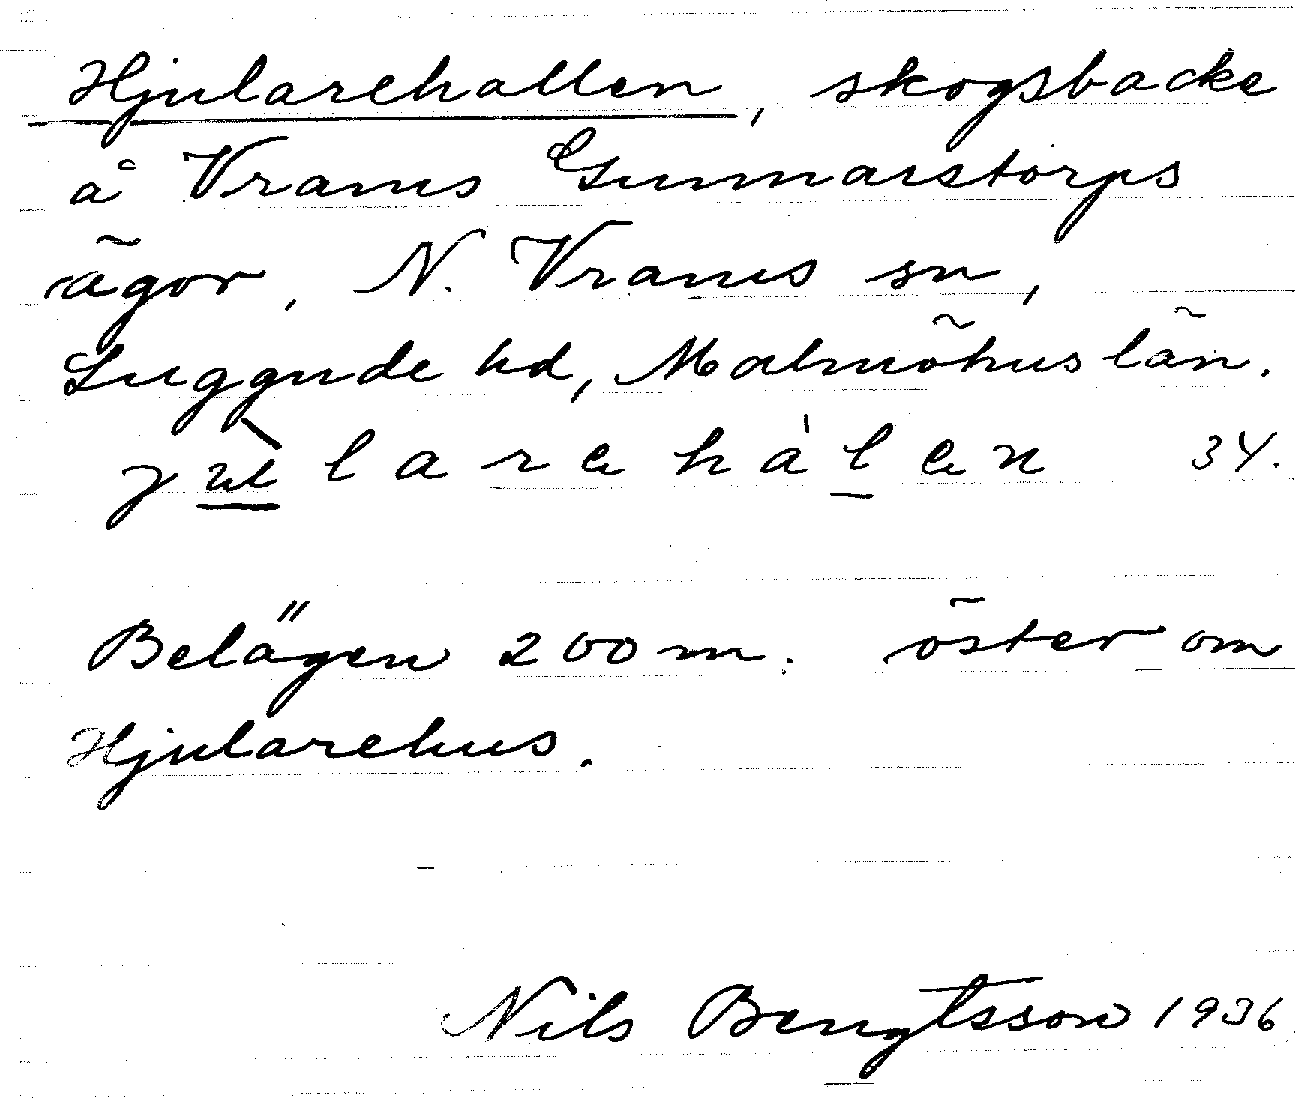 Hjularehallen, skogsbacke
å Vrams Gunnarstorps
ägor, N. Vrams sn,
Luggude hd, Malmöhus län.
34.
Belägen 200 m. öster om
Hjularehus.
Nils Bengtsson 1936